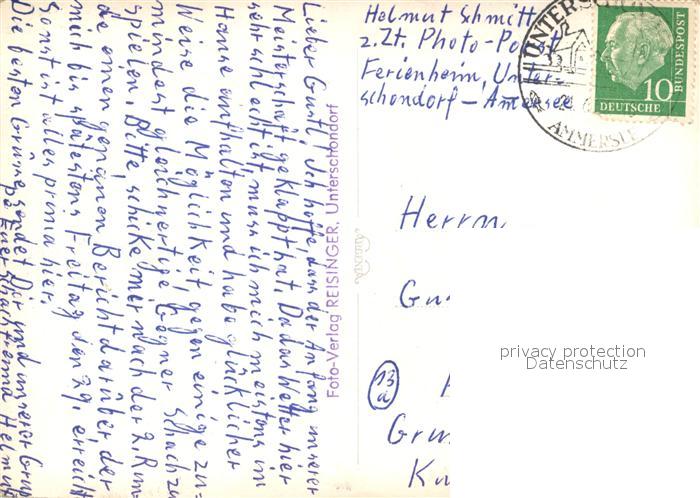 Helmut Schmitt
z.Zt. Photo-Po
Ferienheim, Unter
schondorf – Ammersee
UNTERSCHONDORF
AMMERSEE
DEUTSCHE
BUNDESPOST
10
Lieber Gustl! Ich hoffe, dass der Anfang unserer
Meisterschaft geklappt hat. Da das Wetter hier
sehr schlecht ist, muss ich mich meistens im
Hause aufhalten und habe glücklicher
Weise die Möglichkeit gegen einige zu=
mindest gleichwertige Gegner Schach zu
spielen. Bitte, schicke mir nach der 2. Run=
de einen genauen Bericht darüber, der
mich bis spätestens Freitag, den 29. erreicht
Sonst ist alles prima hier.
Die besten Grüsse sendet Dir und unserer Grup
pe Euer Schachfreund Helmut
Foto-Verlag REISINGER, Unterschondorf
Herrn
Gu
13
a
Grün
Ku
privacy protection
Datenschutz